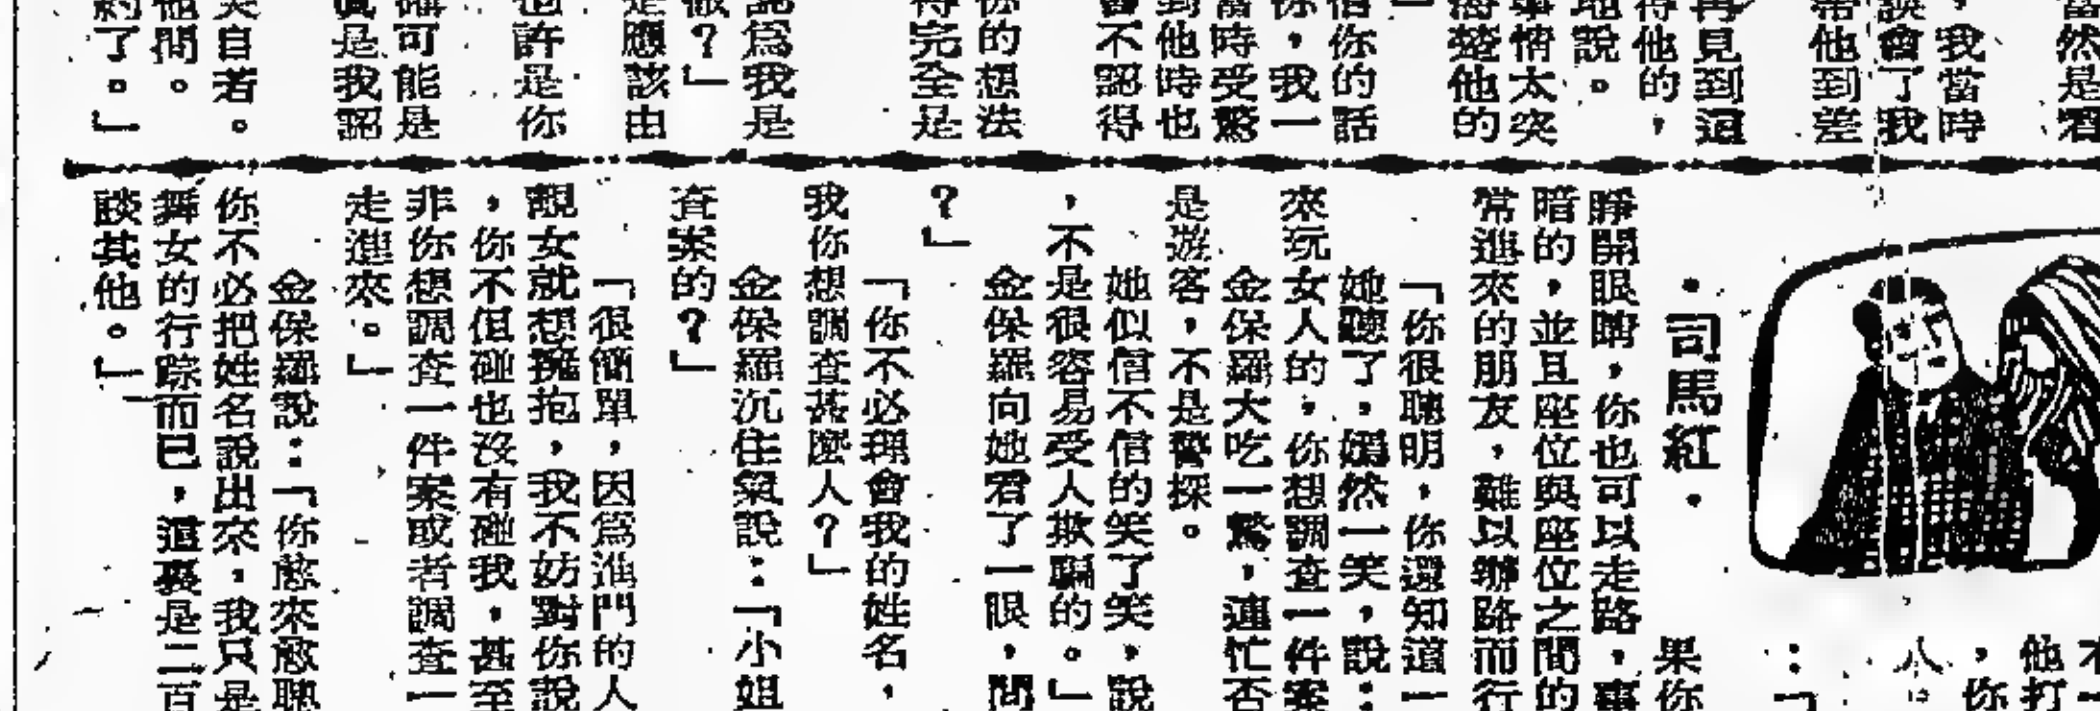 當然是看
，我當時
誤會了我
帶他到差
再見到這
得他的，
地說。
事情太突
清楚他的
」
信你的話
你，我一
當時受驚
到他時也
會不認得
你的想法
得完全是
認爲我是
做？」
是應該由
也許是你
誰可能是
或是我認
笑自若。
他問。
約了。」
不一
他打
，你
人。
：「
果你
・司馬紅・
睜開眼睛，你也可以走路，事
暗的，並且座位與座位之間的
常進來的朋友，難以辦路而行
「你很聰明，你還知道一
她聽了，嫣然一笑，說：
來玩女人的，你想調查一件案
金保羅大吃一驚，連忙否
是遊客，不是警探。
她似信不信的笑了笑，說
，不是很容易受人欺騙的。」
金保羅向她看了一眼，問
？」
「你不必理會我的姓名，
我你想調查甚麼人？」
金保羅沉住氣說：「小姐
查案的？」
「很簡單，因爲進門的人
靚女就想擁抱，我不妨對你說
，你不但碰也沒有碰我，甚至
非你想調查一件案或者調查一
走進來。」
金保羅說：「你愈來愈聰
你不必把姓名說出來，我只是
舞女的行踪而已，這裏是二百
談其他。」